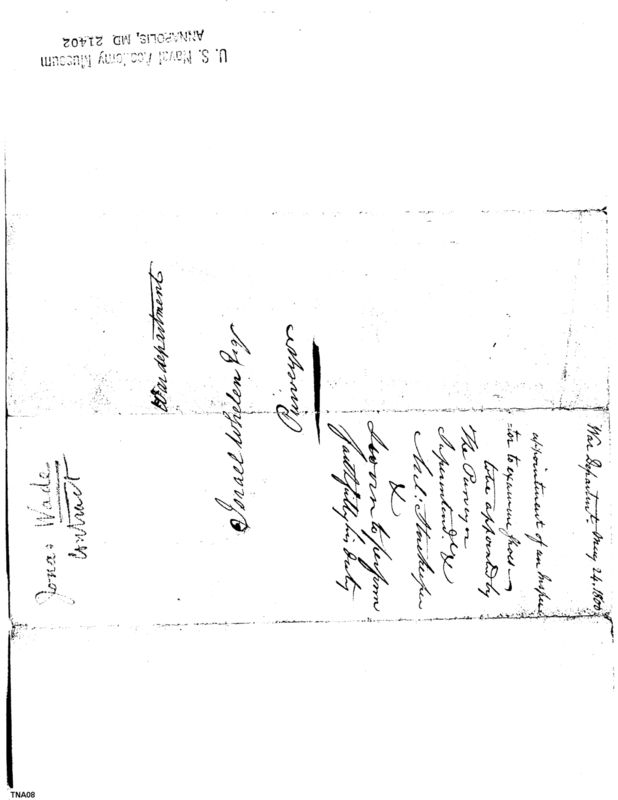 U. S. Naval Academy Museum
ANNAPOLIS, MD 21402
War department
Israel Whelen Esq
Purveyor
Jonas Wade
Contract
War Department. May 24. 1800
appointment of an Inspec
-tor to examine shoes
to be appointed by
The Purveyor
Superintend.t &
Mil: Storekeeper
&
Sworn to perform
faithfully his duty
TNA08